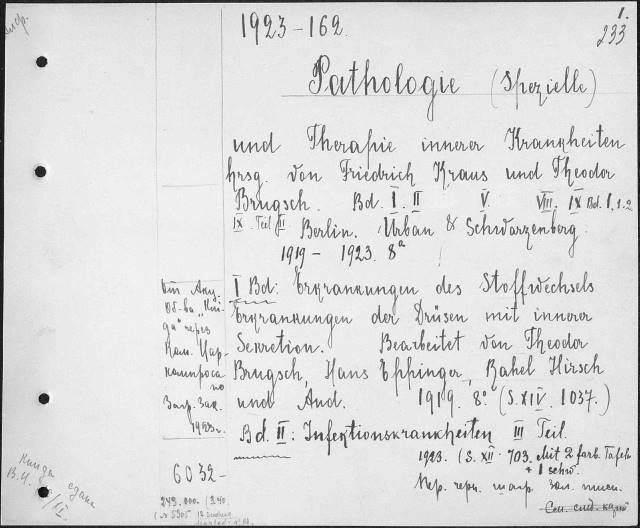 1923-162.
1.
233
Pathologie (Spezielle)
und Therapie innerer Krankheiten
hrsg. von Friedrich Kraus und Theodor
Brugsch. Bd. I. II V. VIII. IX Bd. I, 1.2
IX. Teil II Berlin. Urban & Schwarzenberg.
1919 - 1923. 8°
I Bd: Erkrankungen des Stoffwechsels
Erkrankungen der Drüsen mit innerer
Sekretion. Bearbeitet von Theodor
Brugsch, Hans Eppinger, Rahel Hirsch
und And. 1919. 8° (S. XIV. 1037.)
Bd. II: Infektionskrankheiten III Teil.
1923. (S. XII 703. Mit 2 farb. Tafeln
+ 1 schw.
Пер. черн.
От Акц.
Об-ва "Кни-
га" через
Ком. Нар-
компроса
по
Загр. Зак.
1923 г.
6032-
Книга сдана
В.И.